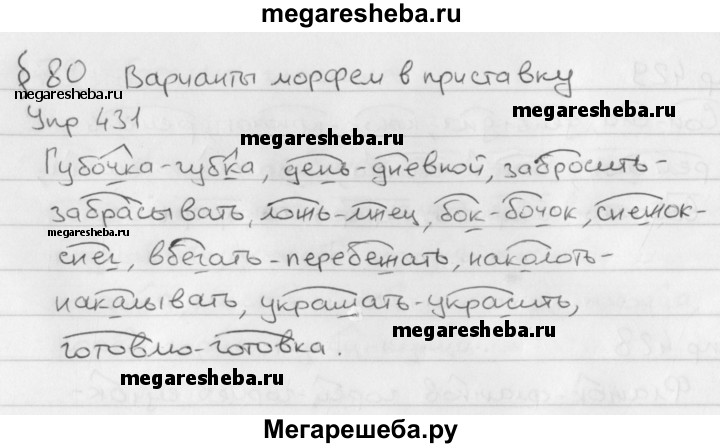 megaresheba.ru
§ 80 Варианты морфем в приставку
megaresheba.ru
megaresheba.ru
Упр 431
megaresheba.ru
Губочка-губка, день-дневной, забросить-
забрасывать, лось-лтец, бок-бочок, снежок-
megaresheba.ru
снег, вбегать-перебежать, наколоть-
накалывать, украшать-украсить,
megaresheba.ru
готовлю-готовка.
megaresheba.ru
Мегарешеба.ру